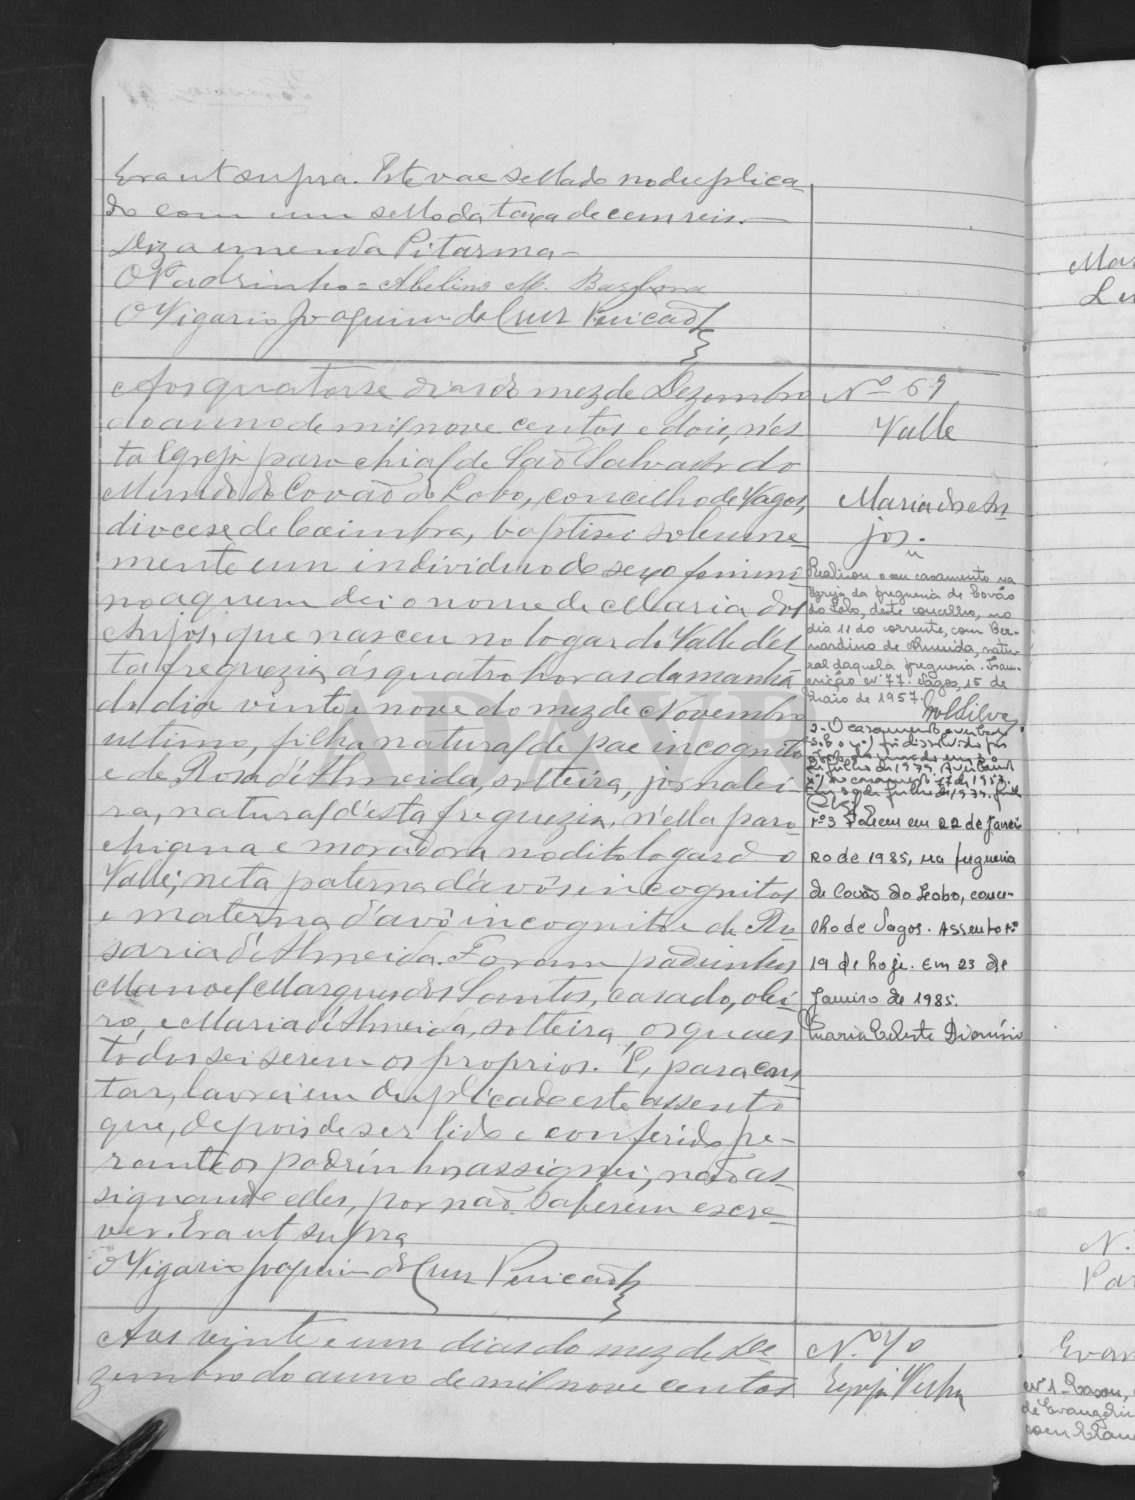 Era ut supra. Este vae sellado no duplica
do com um sello da taxa de cem reis.—
Diz a emenda Pitarma—
O Padrinho = Abelino M. Barbosa
O Vigario Joaquim da Cruz Pericão
Aos quatorse dias do mez de Dezembro
do anno de mil nove centos e dois, n'es
ta Egreja parochial de São Salvador do
Mundo do Covão do Lobo, concelho de Vagos,
diocese de Coimbra, baptisei solemne-
mente um individuo do sexo femini
no a quem dei o nome de Maria dos
Anjos, que nasceu no logar do Valle d'es
ta freguezia, ás quatro horas da manhã
do dia vinte e nove do mez de Novembro
ultimo, filha natural de pae incognito
e de Rosa d'Almeida, solteira, jornalei
ra, natural d'esta freguezia, n'ella paro
chiana e moradora no dito logar do
Valle; neta paterna d'avós incognitos
e materna d'avô incognito e de Ro
saria d'Almeida. Foram padrinhos
Manoel Marques dos Santos, casado, olei
ro, e Maria d'Almeida, solteira, os quaes
todos sei serem os proprios. E, para cons
tar, lavrei em duplicado este assento
que, depois de ser lido e conferido pe-
rante os padrinhos, assignei, não as-
signando elles, por não saberem escre-
ver. Era ut supra
O Vigario Joaquim da Cruz Pericão
Aos vinte e um dias do mez de De
zembro do anno de mil nove centos
Nº 69
Valle
Maria dos An
jos.
Realizou o seu casamento na
Igreja da freguesia de Covão
do Lobo, deste concelho, no
dia 11 do corrente, com Ber-
nardino de Almeida, natu-
ral daquela freguesia. Trans-
crição nº 77. Vagos, 15 de
Maio de 1957.
2-O casamento
foi dissolvido por
Julho de 1979.
casamento 77 de 1957.
Nº3 Faleceu em 22 de Janei
ro de 1985, na freguesia
de Covão do Lobo, conce-
lho de Vagos. Assento nº
19 de hoje. Em 23 de
Janeiro de 1985.
Maria Celeste Dionísio
N.º 70
Egreja Velha
ADAVR
Mar
N.
Par
Evan
nº 1- Casou,
de Evangelin
com